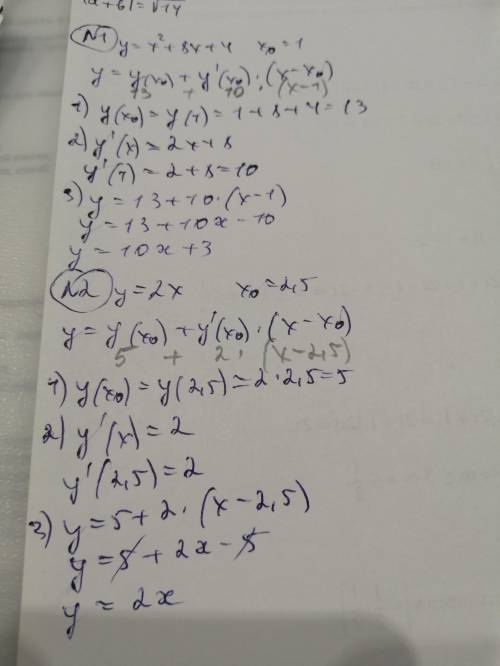 |a+b|=√14
№1 y=x²+8x+4 x₀=1
y=y(x₀)+y'(x₀)·(x-x₀)
13 + 10 · (x-1)
1) y(x₀)=y(1)=1+8+4=13
2) y'(x)=2x+8
y'(1)=2+8=10
3) y=13+10·(x-1)
y=13+10x-10
y=10x+3
№2 y=2x x₀=2,5
y=y(x₀)+y'(x₀)·(x-x₀)
5 + 2· (x-2,5)
1) y(x₀)=y(2,5)=2·2,5=5
2) y'(x)=2
y'(2,5)=2
3) y=5+2·(x-2,5)
y=5+2x-5
y=2x